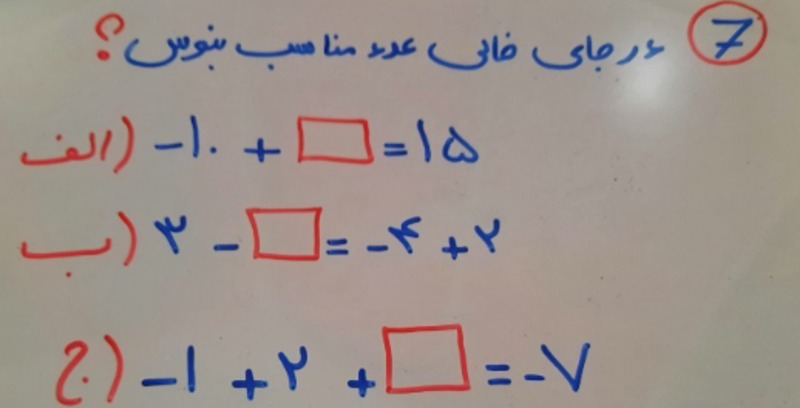 7 در جای خالی عدد مناسب بنویس؟
الف) -۱۰ + □ = ۱۵
ب) ۳ - □ = -۴ + ۲
ج) -۱ + ۲ + □ = -۷